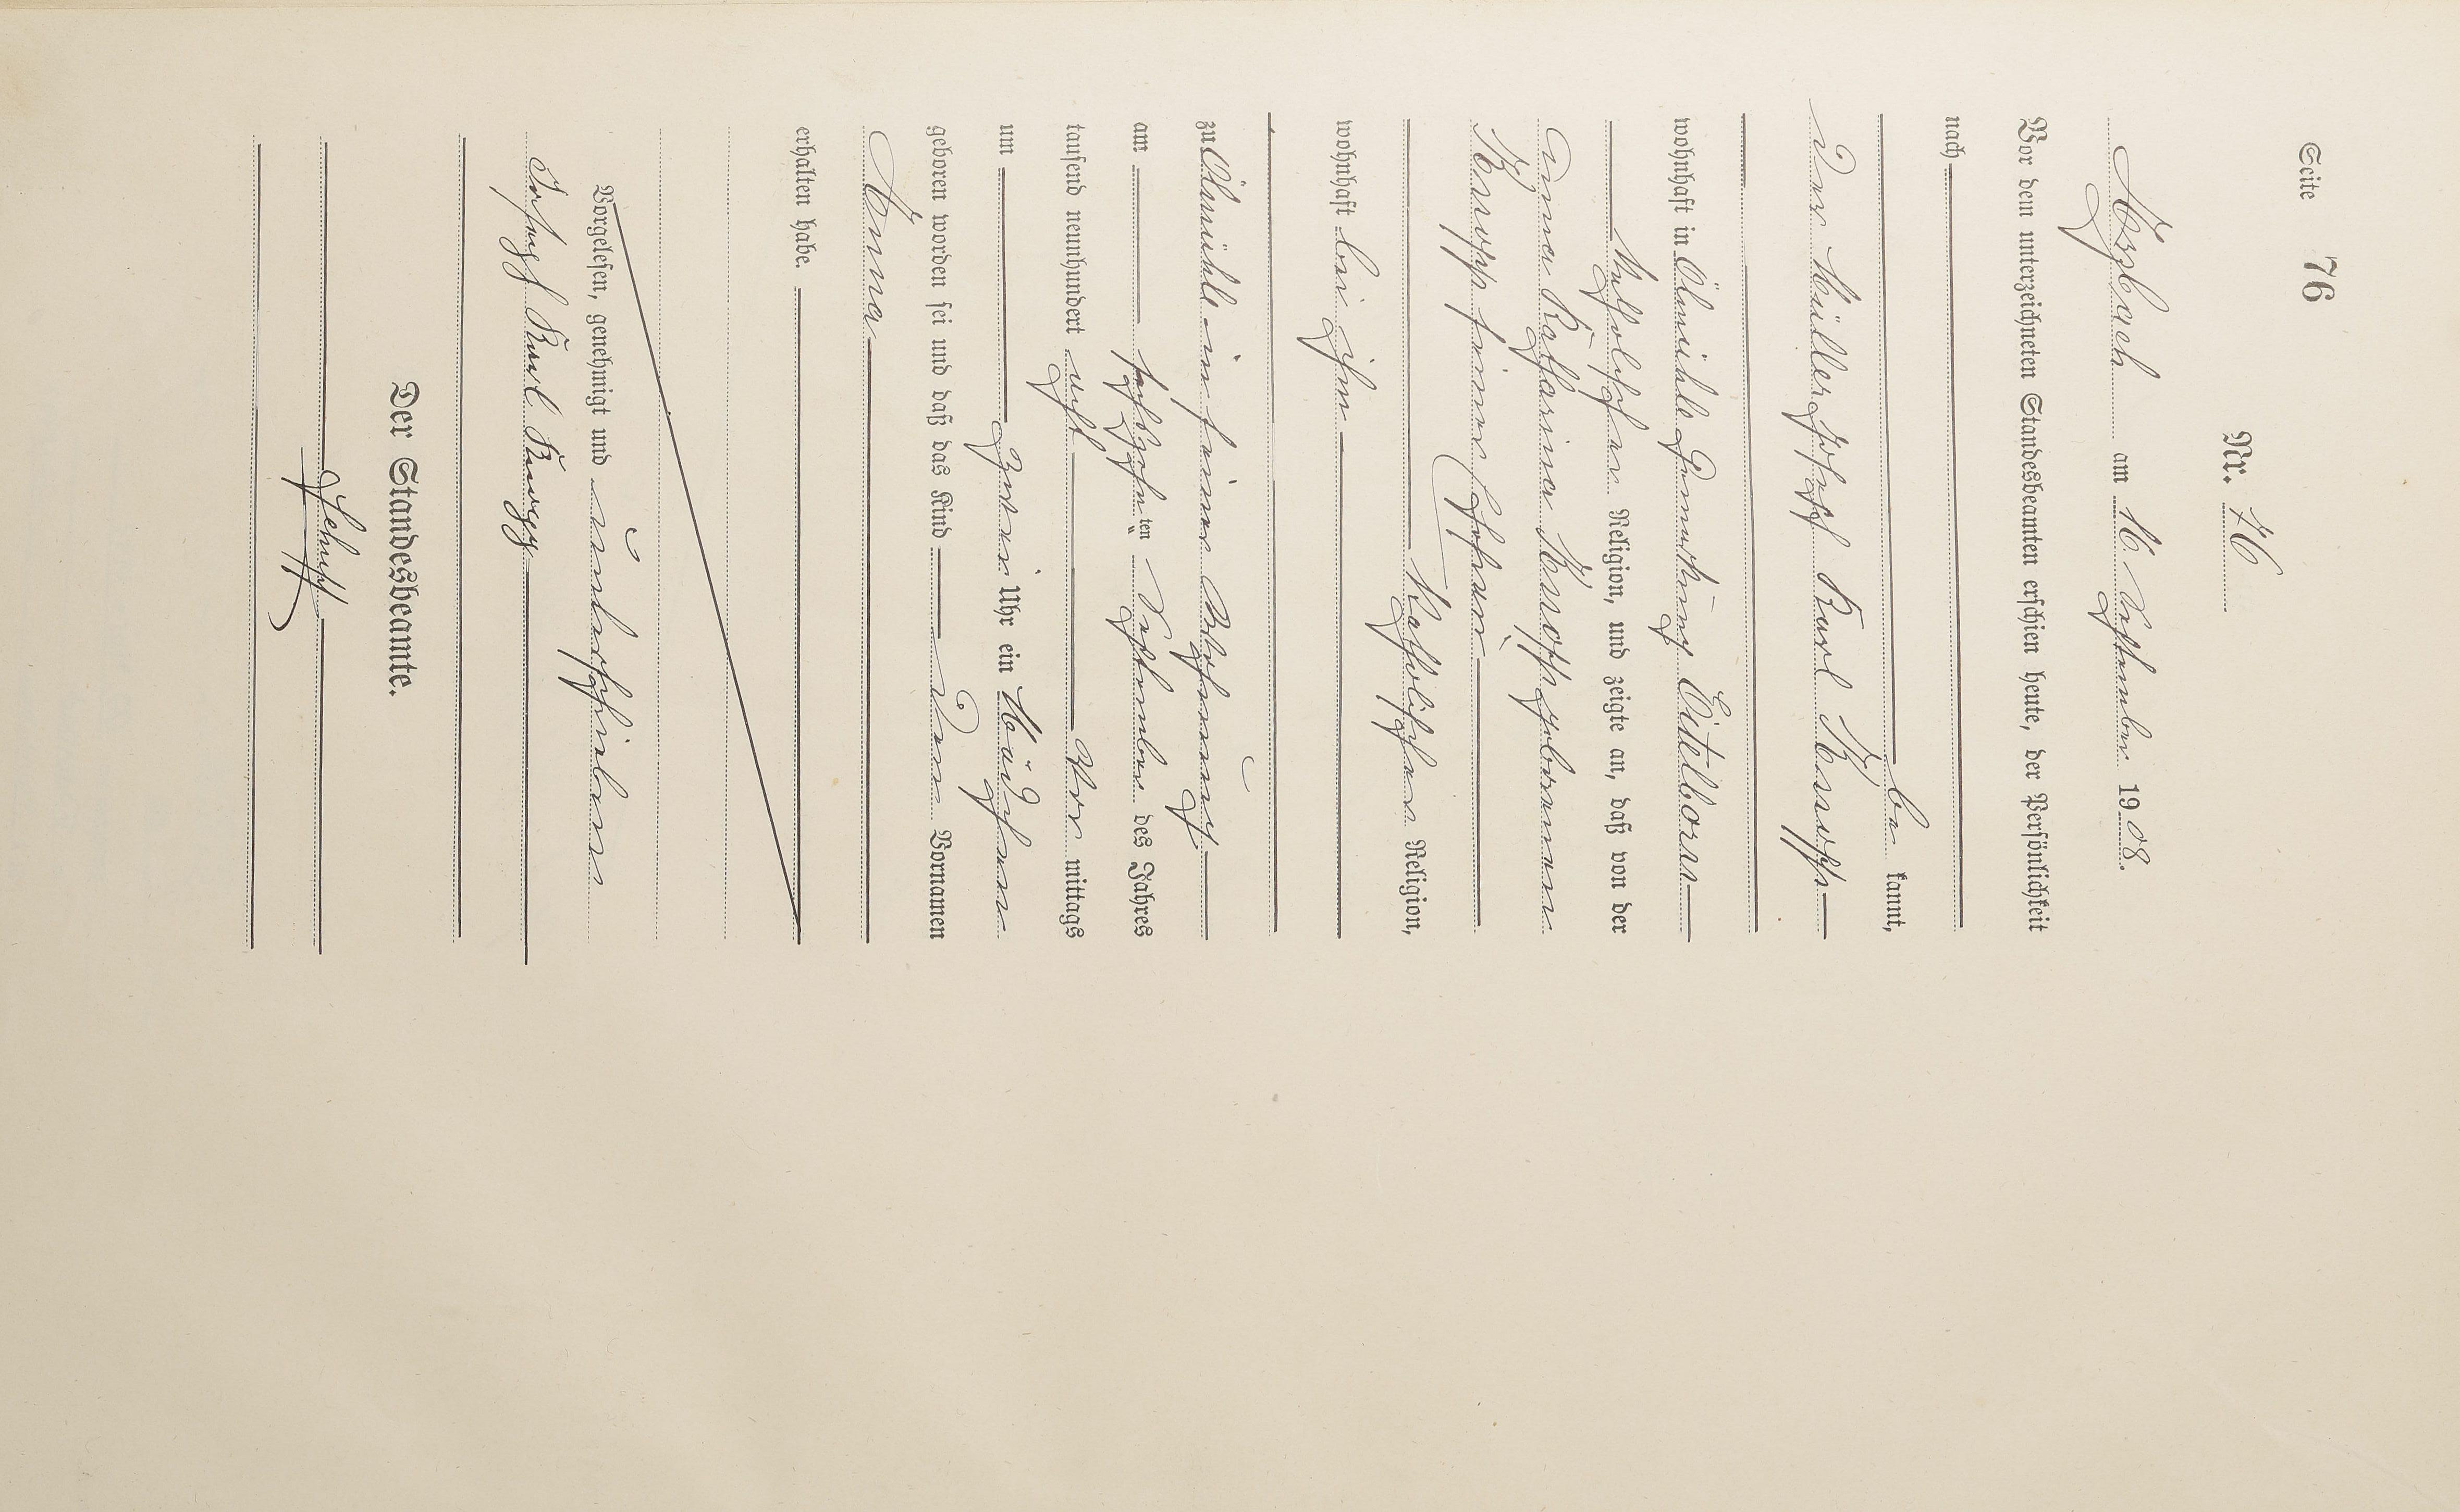 Seite 76
Nr. 76
Arzbach am 16 September 1908.
Vor dem unterzeichneten Standesbeamten erschien heute, der Persönlichkeit
nach
be kannt,
der Müller Joseph Karl Knopp
wohnhaft in Ölmühle Gemarkung Eitelborn
katholischer Religion, und zeigte an, daß von der
Anna Katharina Knopp geborenen
Knopp seiner Ehefrau
katholischer Religion,
wohnhaft bei ihm
zu Ölmühle in seiner Wohnung
am sechszehn ten September des Jahres
tausend neunhundert acht Vor mittags
um zwei Uhr ein Mädchen
geboren worden sei und daß das Kind den Vornamen
Anna
erhalten habe.
Vorgelesen, genehmigt und unterschrieben
Joseph Karl Knopp
Der Standesbeamte.